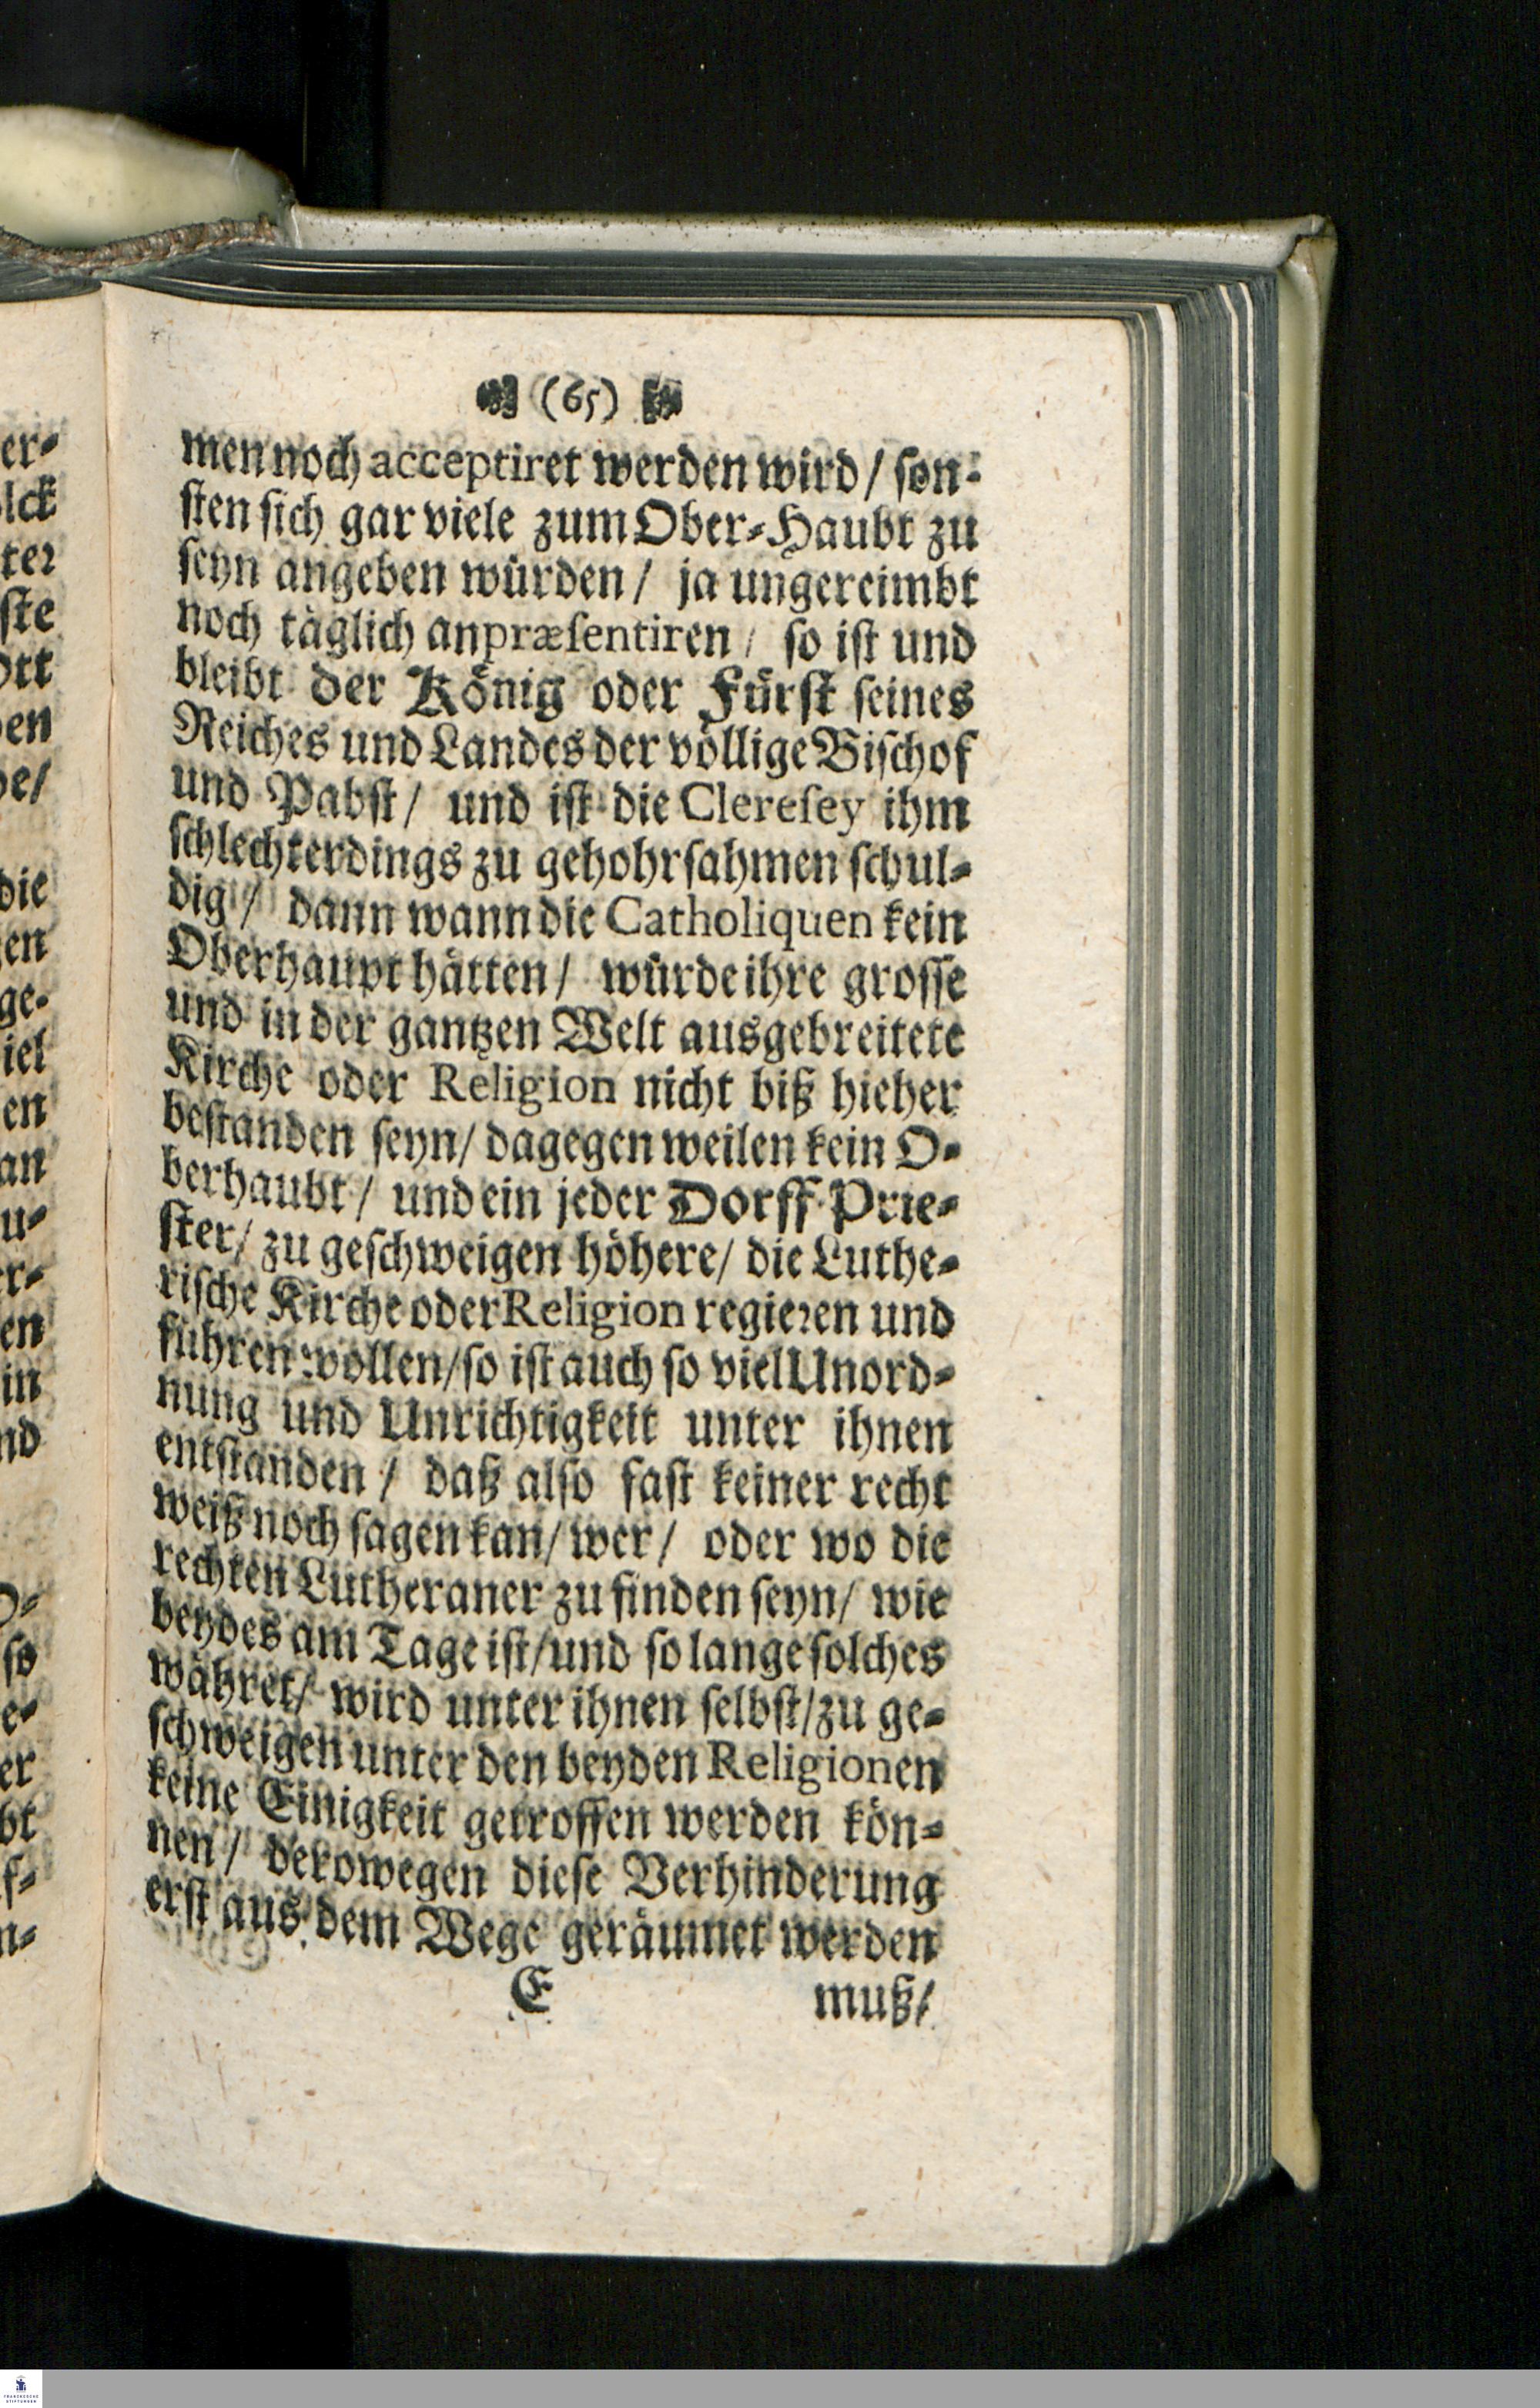 (65)
men noch acceptiret werden wird / son-
sten sich gar viele zum Ober-Haubt zu
seyn angeben würden / ja ungereimbt
noch täglich anpræsentiren / so ist und
bleibt der König oder Fürst seines
Reiches und Landes der völlige Bischof
und Pabst / und ist die Cleresey ihm
schlechterdings zu gehohrsahmen schul-
dig / dann wann die Catholiquen kein
Oberhaupt hätten / würde ihre grosse
und in der gantzen Welt ausgebreitete
Kirche oder Religion nicht biß hieher
bestanden seyn / dagegen weilen kein O-
berhaubt / und ein jeder Dorff-Prie-
ster / zu geschweigen höhere / die Luthe-
rische Kirche oder Religion regieren und
führen wollen / so ist auch so viel Unord-
nung und Unrichtigkeit unter ihnen
entstanden / daß also fast keiner recht
weiß noch sagen kan / wer / oder wo die
rechten Lutheraner zu finden seyn / wie
beydes am Tage ist / und so lange solches
währet / wird unter ihnen selbst / zu ge-
schweigen unter den beyden Religionen
keine Einigkeit getroffen werden kön-
nen / derowegen diese Verhinderung
erst aus dem Wege geräumet werden
E muß /
er-
ste
ott
die
ge-
iel
en
an
u-
en
in
so
e-
er
bt
f-
n-
FRANCKESCHE
STIFTUNGEN